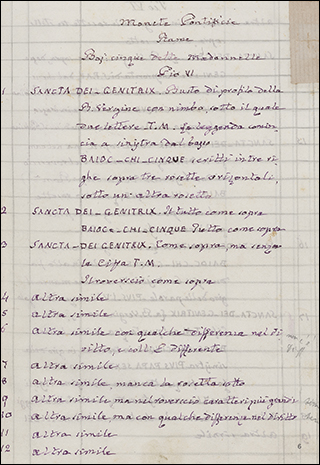 Monete Pontificie
Rame
Baj cinque delle Madonnelle
Pio VI
1 SANCTA DEI GENITRIX. Busto di profilo della
B. Vergine con nimbo, sotto il quale
due lettere T.M. la leggenda comin
cia a sinistra dal basso
BAIOC_CHI_CINQUE scritti in tre ri
ghe sopra tre rosette orizontali,
sotto un'altra rosetta
2 SANCTA DEI_GENITRIX. Il tutto come sopra
BAIOC_CHI_CINQUE Tutto come sopra
3 SANCTA_DEI GENITRIX. Come sopra, ma senza
la Cifra T.M.
Il rovescio come sopra
4 altra simile
5 altra simile
6 altra simile con qualche differenza nel di
ritto, e coll' E differente
7 altra simile
8 altra simile manca la rosetta sotto
9 altra simile ma nel rovescio caratteri più grandi
10 altra simile ma con qualche differenze nel diritto
11 altra simile
12 altra simile
6